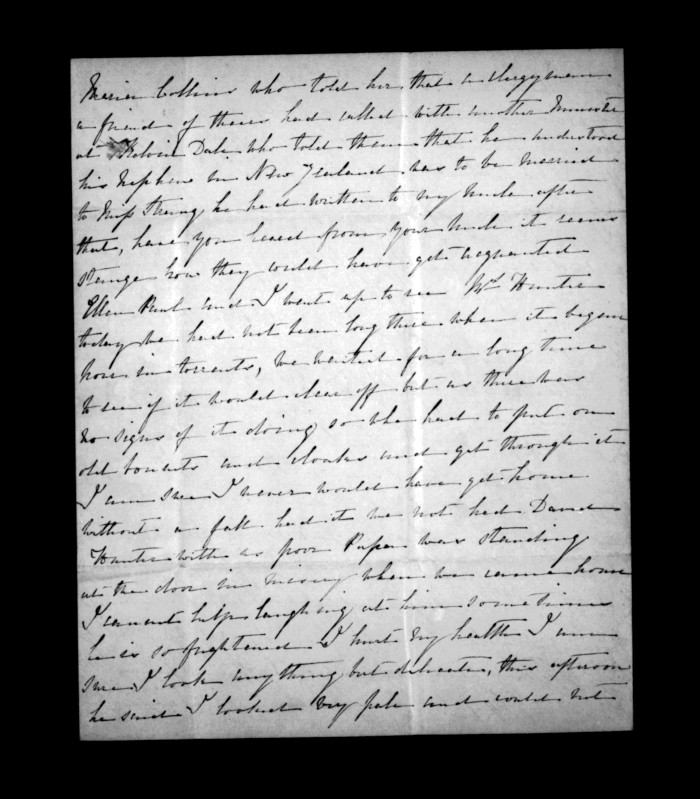 Maria Collins who told her that a clergyman
a friend of theirs had called with another Minister
at Kelvin Dale who told them that he understood
his nephew in New Zealand was to be married
to Miss Strang he had written to my Uncle after
that, have you heard from your Uncle it seems
strange how they could have got acquainted
Ellen Paul and I went up to see Mrs Hunter
today we had not been long there when it began
in torrents, we waited for a long time
to see if it would clear off but as there was
no signs of it doing so we had to put on
old bonnets and cloaks and get through it
I am sure I never would have got home
without a fall had it we not had David
Hunter with us poor Papa was standing
at the door in misery when we came home
I cannot help laughing at him sometimes
he is so frightened I hurt my health I am
sure I look anything but delicate, this afternoon
he said I looked very pale and would not